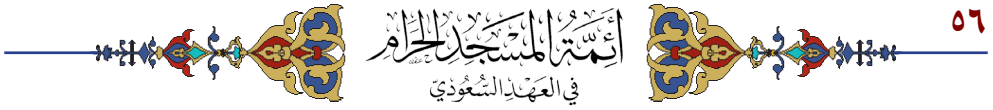 ٥٦
أَئِمَّةُ المَسْجِدِ الحَرَامِ
فِي العَهْدِ السُّعُودِيِّ